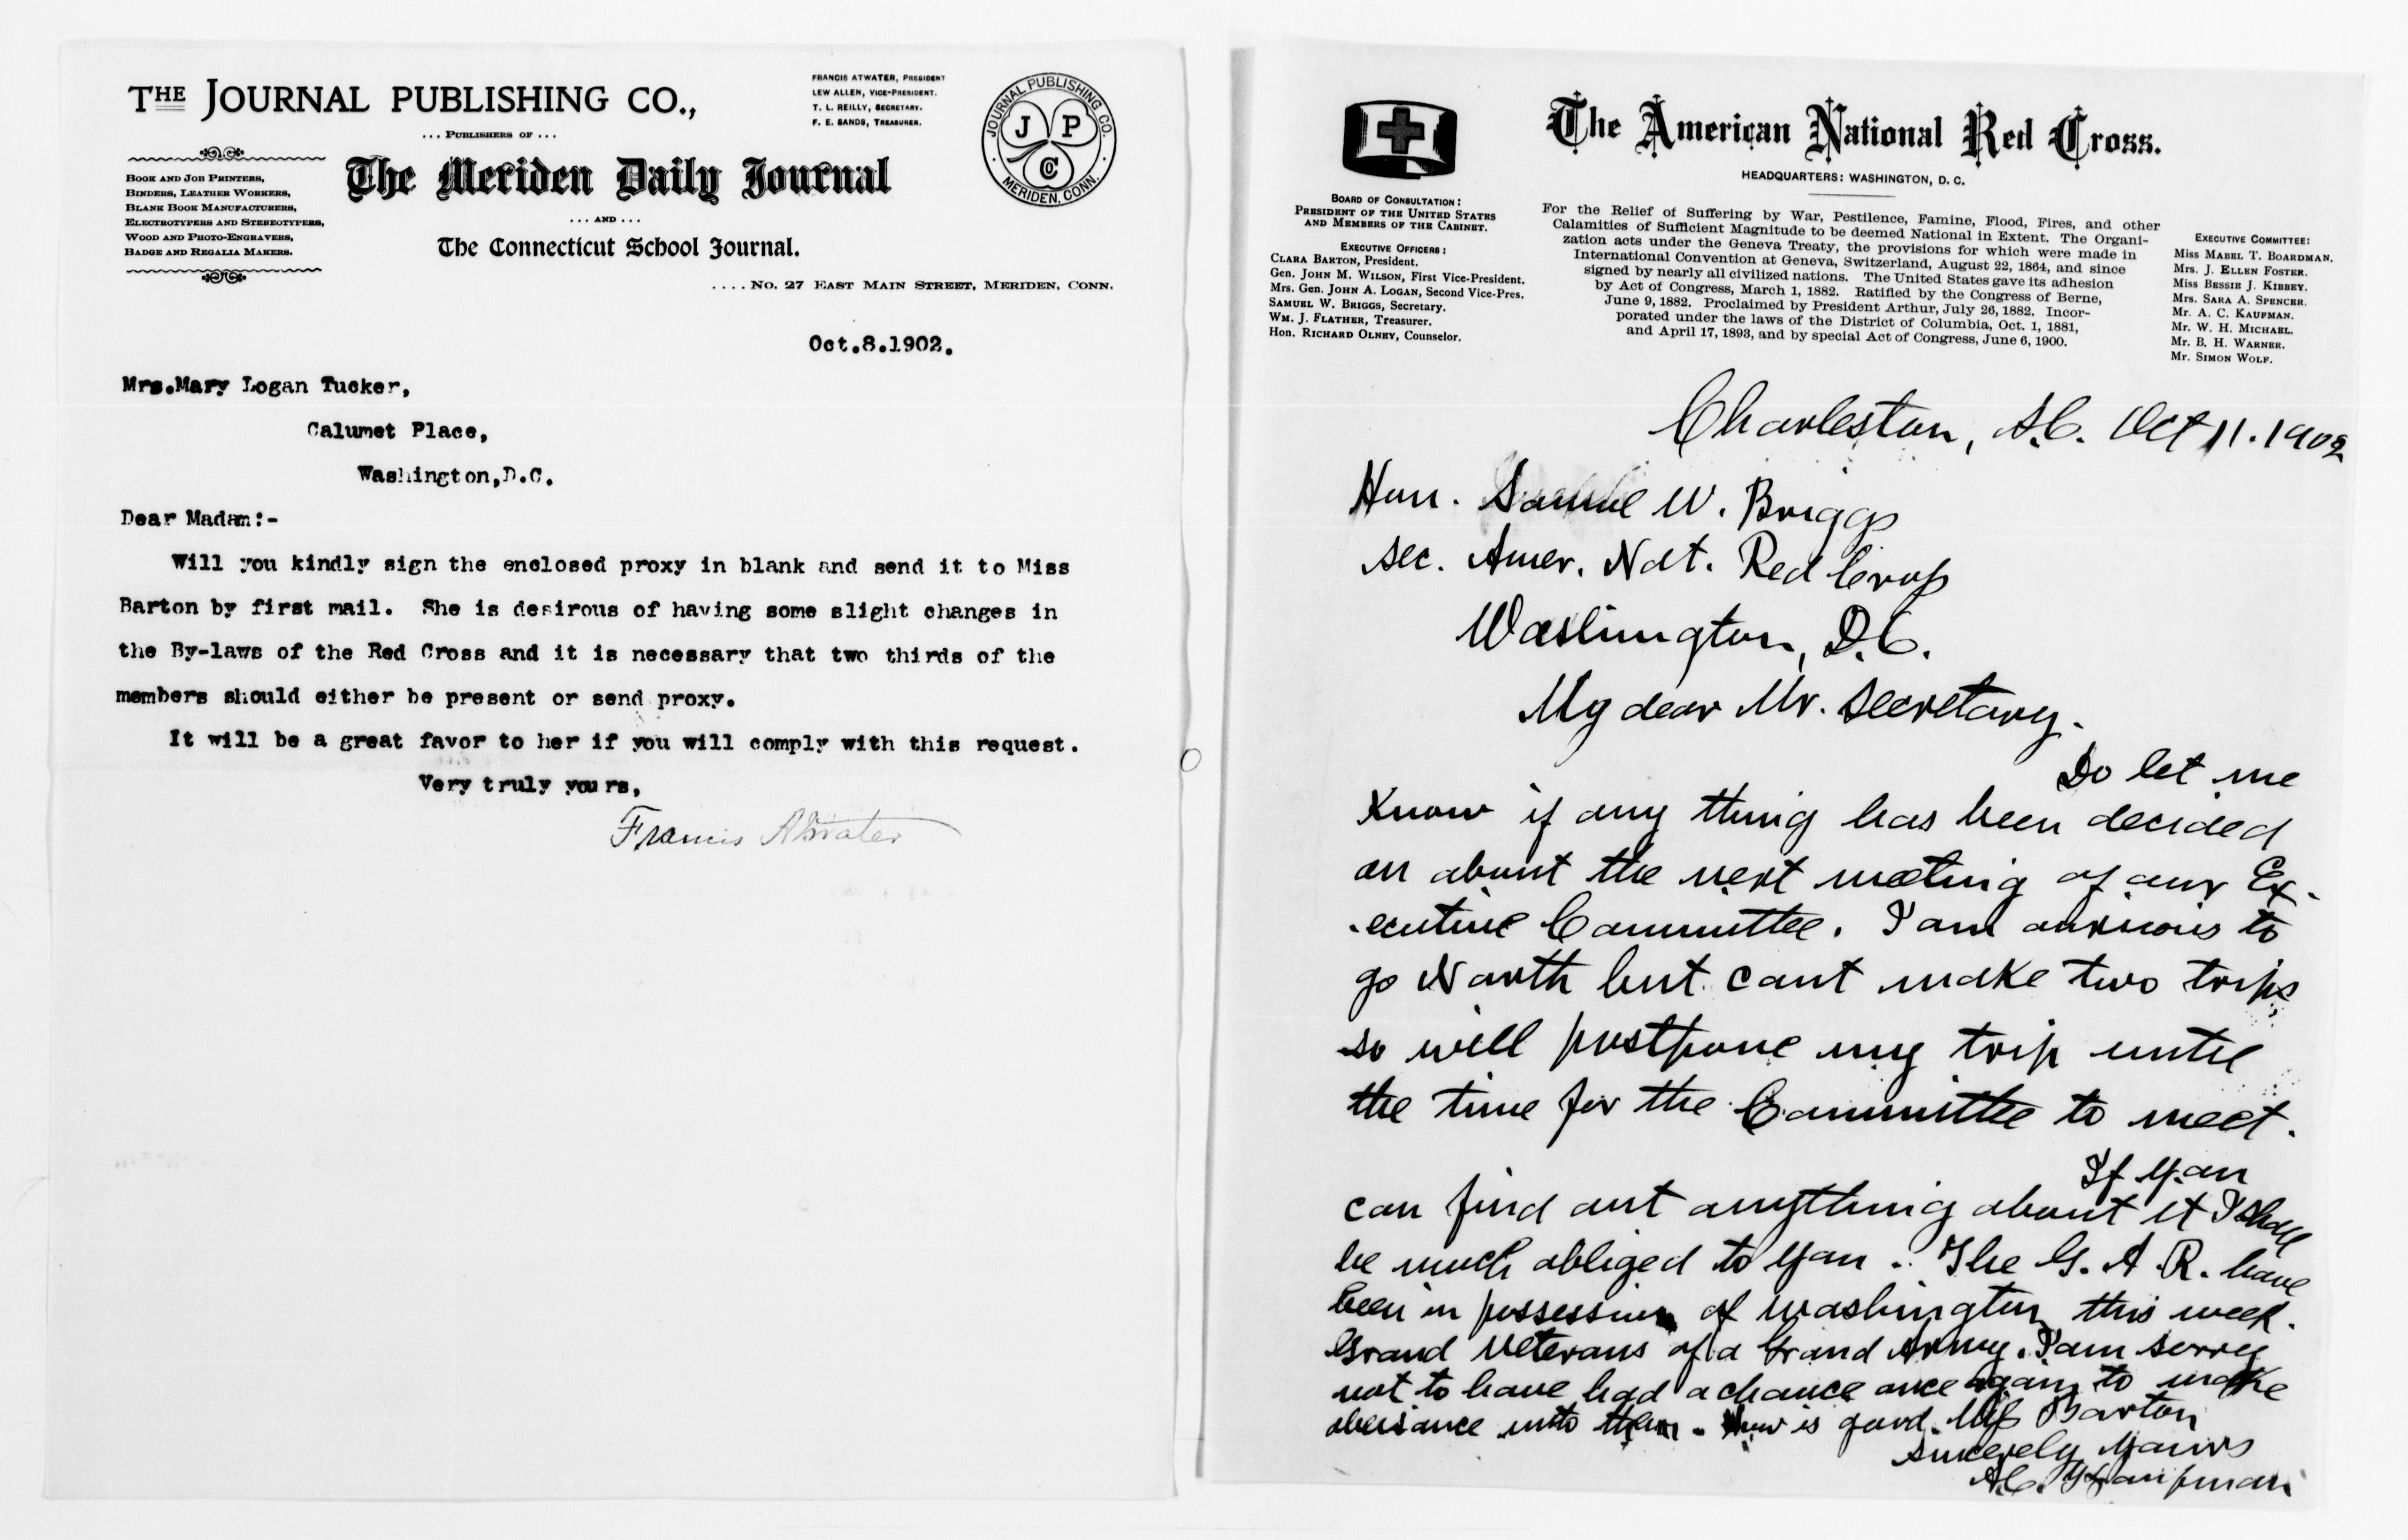 THE JOURNAL PUBLISHING CO.,
... PUBLISHERS OF ...
The Meriden Daily Journal
... AND ...
The Connecticut School Journal.
.... No. 27 EAST MAIN STREET, MERIDEN, CONN.
BOOK AND JOB PRINTERS,
BINDERS, LEATHER WORKERS,
BLANK BOOK MANUFACTURERS,
ELECTROTYPERS AND STEREOTYPERS,
WOOD AND PHOTO-ENGRAVERS,
BADGE AND REGALIA MAKERS.
FRANCIS ATWATER, PRESIDENT
LEW ALLEN, VICE-PRESIDENT.
T. L. REILLY, SECRETARY.
F. E. SANDS, TREASURER.
JOURNAL PUBLISHING CO.
J P
Co
MERIDEN, CONN.
Oct.8.1902.
Mrs.Mary Logan Tucker,
Calumet Place,
Washington,D.C.
Dear Madam:-
Will you kindly sign the enclosed proxy in blank and send it to Miss
Barton by first mail. She is desirous of having some slight changes in
the By-laws of the Red Cross and it is necessary that two thirds of the
members should either be present or send proxy.
It will be a great favor to her if you will comply with this request.
Very truly yours,
Francis Atwater
The American National Red Cross.
HEADQUARTERS: WASHINGTON, D. C.
BOARD OF CONSULTATION:
PRESIDENT OF THE UNITED STATES
AND MEMBERS OF THE CABINET.
EXECUTIVE OFFICERS:
CLARA BARTON, President.
Gen. JOHN M. WILSON, First Vice-President.
Mrs. Gen. JOHN A. LOGAN, Second Vice-Pres.
SAMUEL W. BRIGGS, Secretary.
WM. J. FLATHER, Treasurer.
Hon. RICHARD OLNEY, Counselor.
For the Relief of Suffering by War, Pestilence, Famine, Flood, Fires, and other
Calamities of Sufficient Magnitude to be deemed National in Extent. The Organi-
zation acts under the Geneva Treaty, the provisions for which were made in
International Convention at Geneva, Switzerland, August 22, 1864, and since
signed by nearly all civilized nations. The United States gave its adhesion
by Act of Congress, March 1, 1882. Ratified by the Congress of Berne,
June 9, 1882. Proclaimed by President Arthur, July 26, 1882. Incor-
porated under the laws of the District of Columbia, Oct. 1, 1881,
and April 17, 1893, and by special Act of Congress, June 6, 1900.
EXECUTIVE COMMITTEE:
Miss MABEL T. BOARDMAN.
Mrs. J. ELLEN FOSTER.
Miss BESSIE J. KIBBEY.
Mrs. SARA A. SPENCER.
Mr. A. C. KAUFMAN.
Mr. W. H. MICHAEL.
Mr. B. H. WARNER.
Mr. SIMON WOLF.
Charleston, S.C. Oct 11. 1902
Hon. Samuel W. Briggs
Sec. Amer. Nat. Red Cross
Washington, D.C.
My dear Mr. Secretary.
Do let me
Know if any thing has been decided
on about the next meeting of our Ex-
-ecutive Committee. I am anxious to
go North but cant make two trips
so will postpone my trip until
the time for the Committee to meet.
If you
can find out anything about it I shall
be much obliged to you. The G. A. R. have
been in possession of Washington this week.
Grand Veterans of a Grand Army. I am sorry
not to have had a chance once again to make
obeisance unto them. How is good Miss Barton
Sincerely Yours
A.C. Kaufman